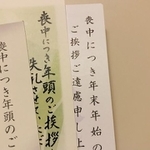 喪中につき年末年始の
ご挨拶ご遠慮申し上
喪中につき年頭のご挨拶
失礼させて
喪中につき
年頭のご